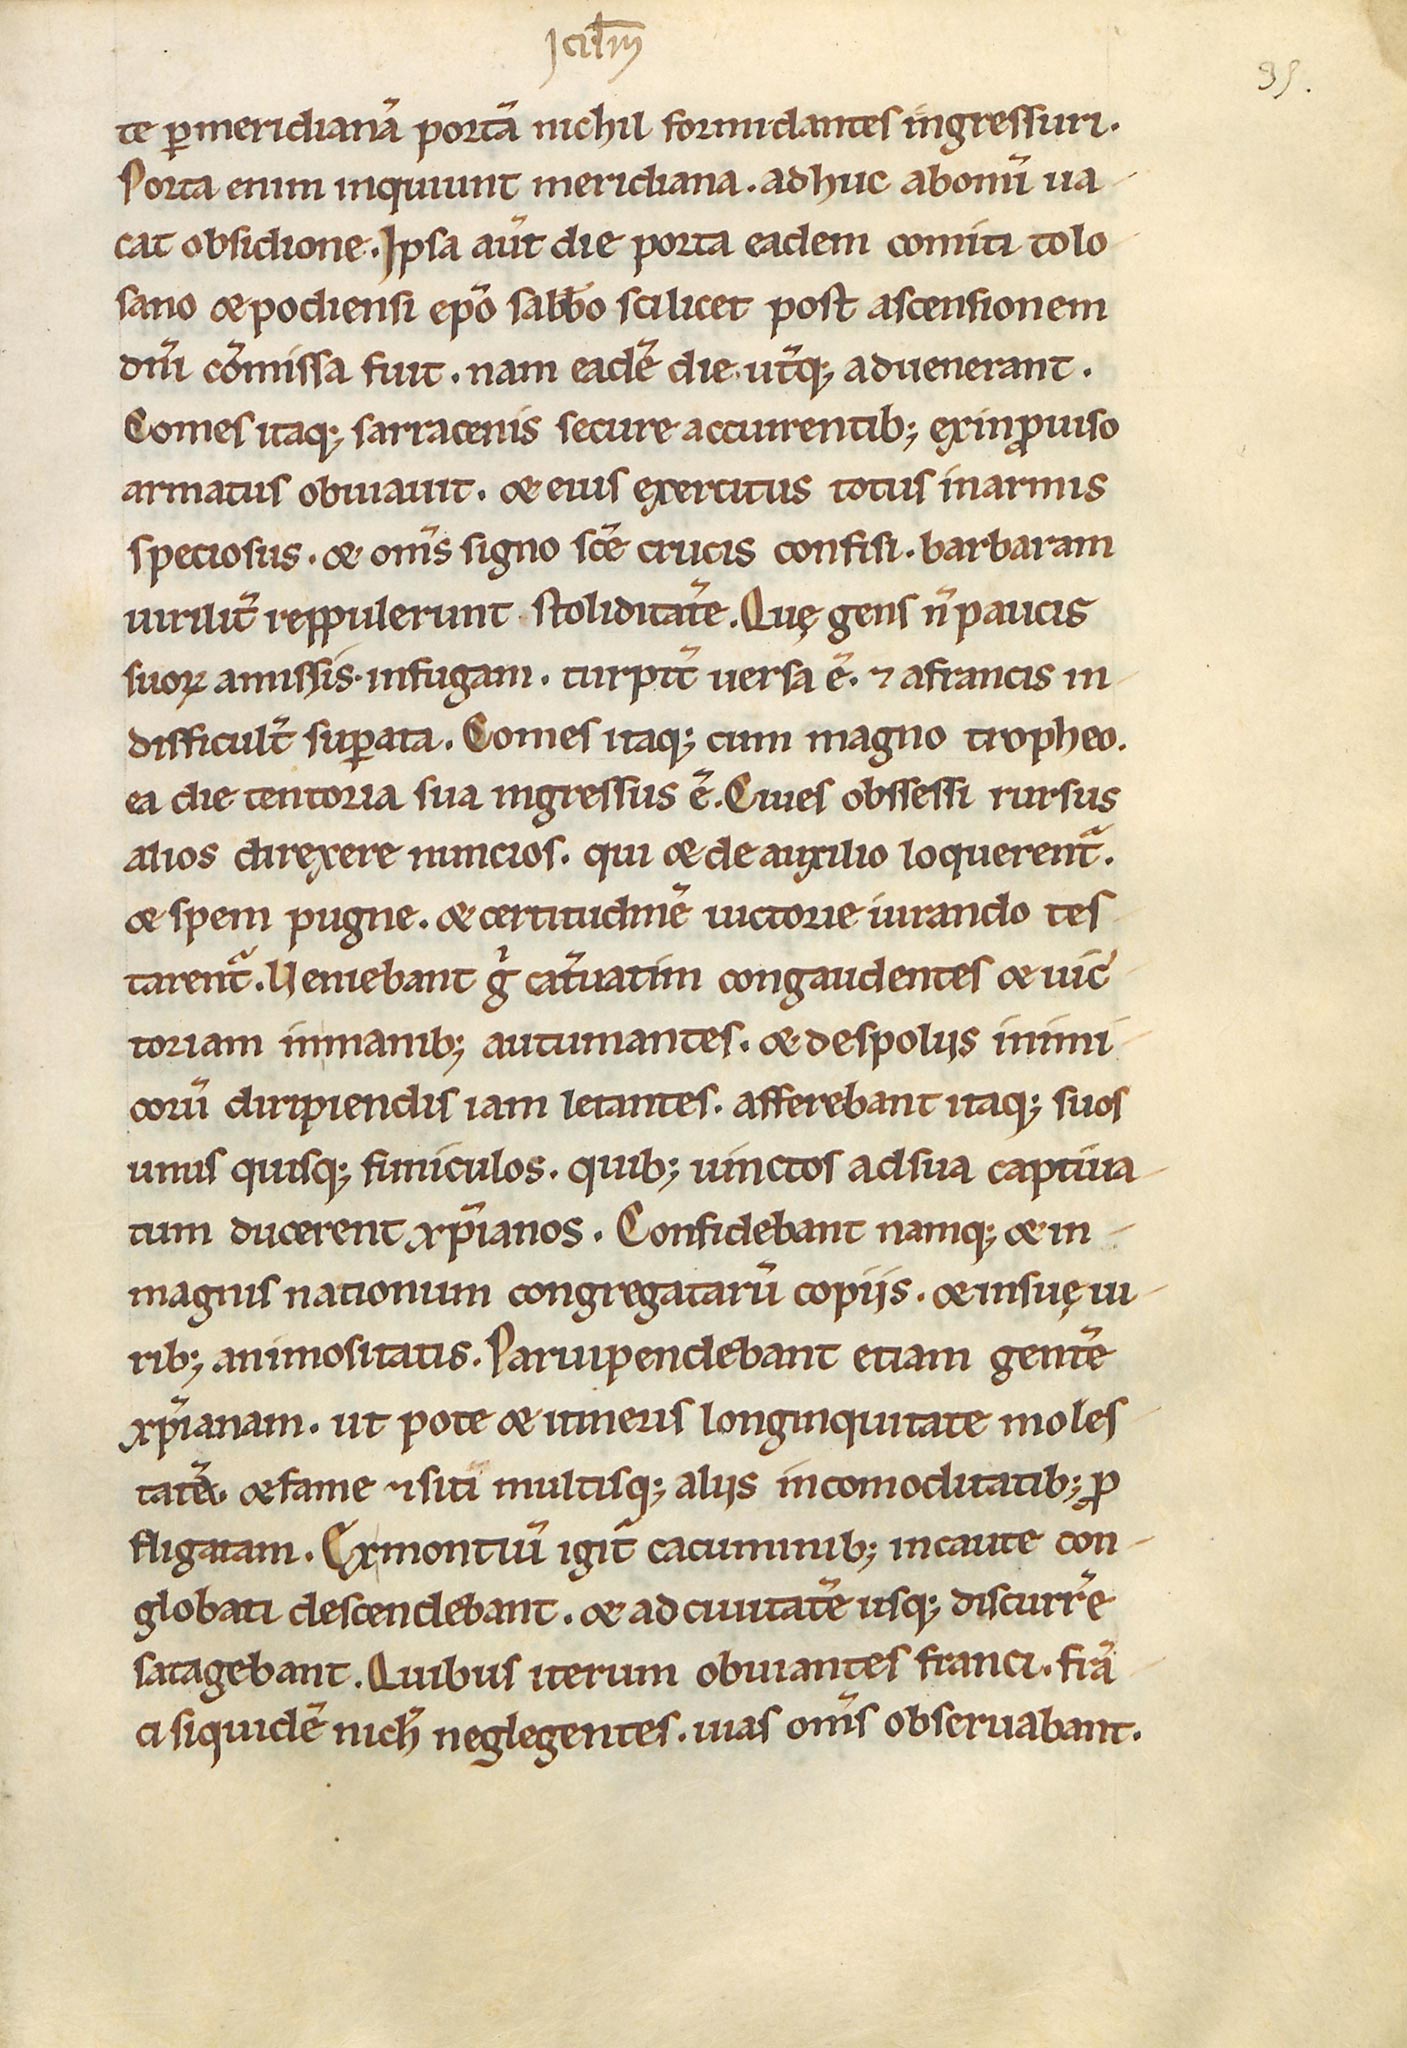 35.
te ꝑ meridianā portā nichil formidantes ingressuri.
Porta enim inquiunt meridiana. adhuc ab omī ua
cat obsidione. Ipsa aūt die porta eadem comiti tolo
sano & podiensi ep̄o sabb̄o scilicet post ascensionem
dn̄i cōmissa fuit. nam eadē die ut̄q; aduenerant.
Comes itaq; sarracenis secure accurrentib; ex inꝓuiso
armatus obuiauit. & eius exercitus totus in armis
speciosus. & om̄s signo sc̄e crucis confisi. barbaram
uirilit̄ reppulerunt stoliditatē. Quę gens n̄ paucis
suoꝝ amissis. in fugam. turpit̄ uersa ē. ⁊ a francis in
difficult̄ suꝑata. Comes itaq; cum magno tropheo.
ea die tentoria sua ingressus ē. Ciues obssessi rursus
alios direxere nuncios. qui & de auxilio loquerent̄.
& spem pugne. & certitudinē uictorie iurando tes
tarent̄. Ueniebant g̊ cat̄uatim congaudentes & uic
toriam in manib; autumantes. & de spoliis inimi
corū diripiendis iam letantes. afferebant itaq; suos
unus quisq; funiculos. quib; uinctos ad sua captiua
tum ducerent xp̄ianos. Confidebant namq; & in
magnis nationum congregatarū copiis. & in suę ui
rib; animositatis. Paruipendebant etiam gentē
xp̄ianam. ut pote & itineris longinquitate moles
tatā. & fame ⁊ siti multisq; aliis incomoditatib; ꝓ
fligatam. Ex montiū igit̄ cacuminib; incaute con
globati descendebant. & ad ciuitatē usq; discurrē
satagebant. Quibus iterum obuiantes franci. frā
ci siquidē nich̄ neglegentes. uias om̄s obseruabant.